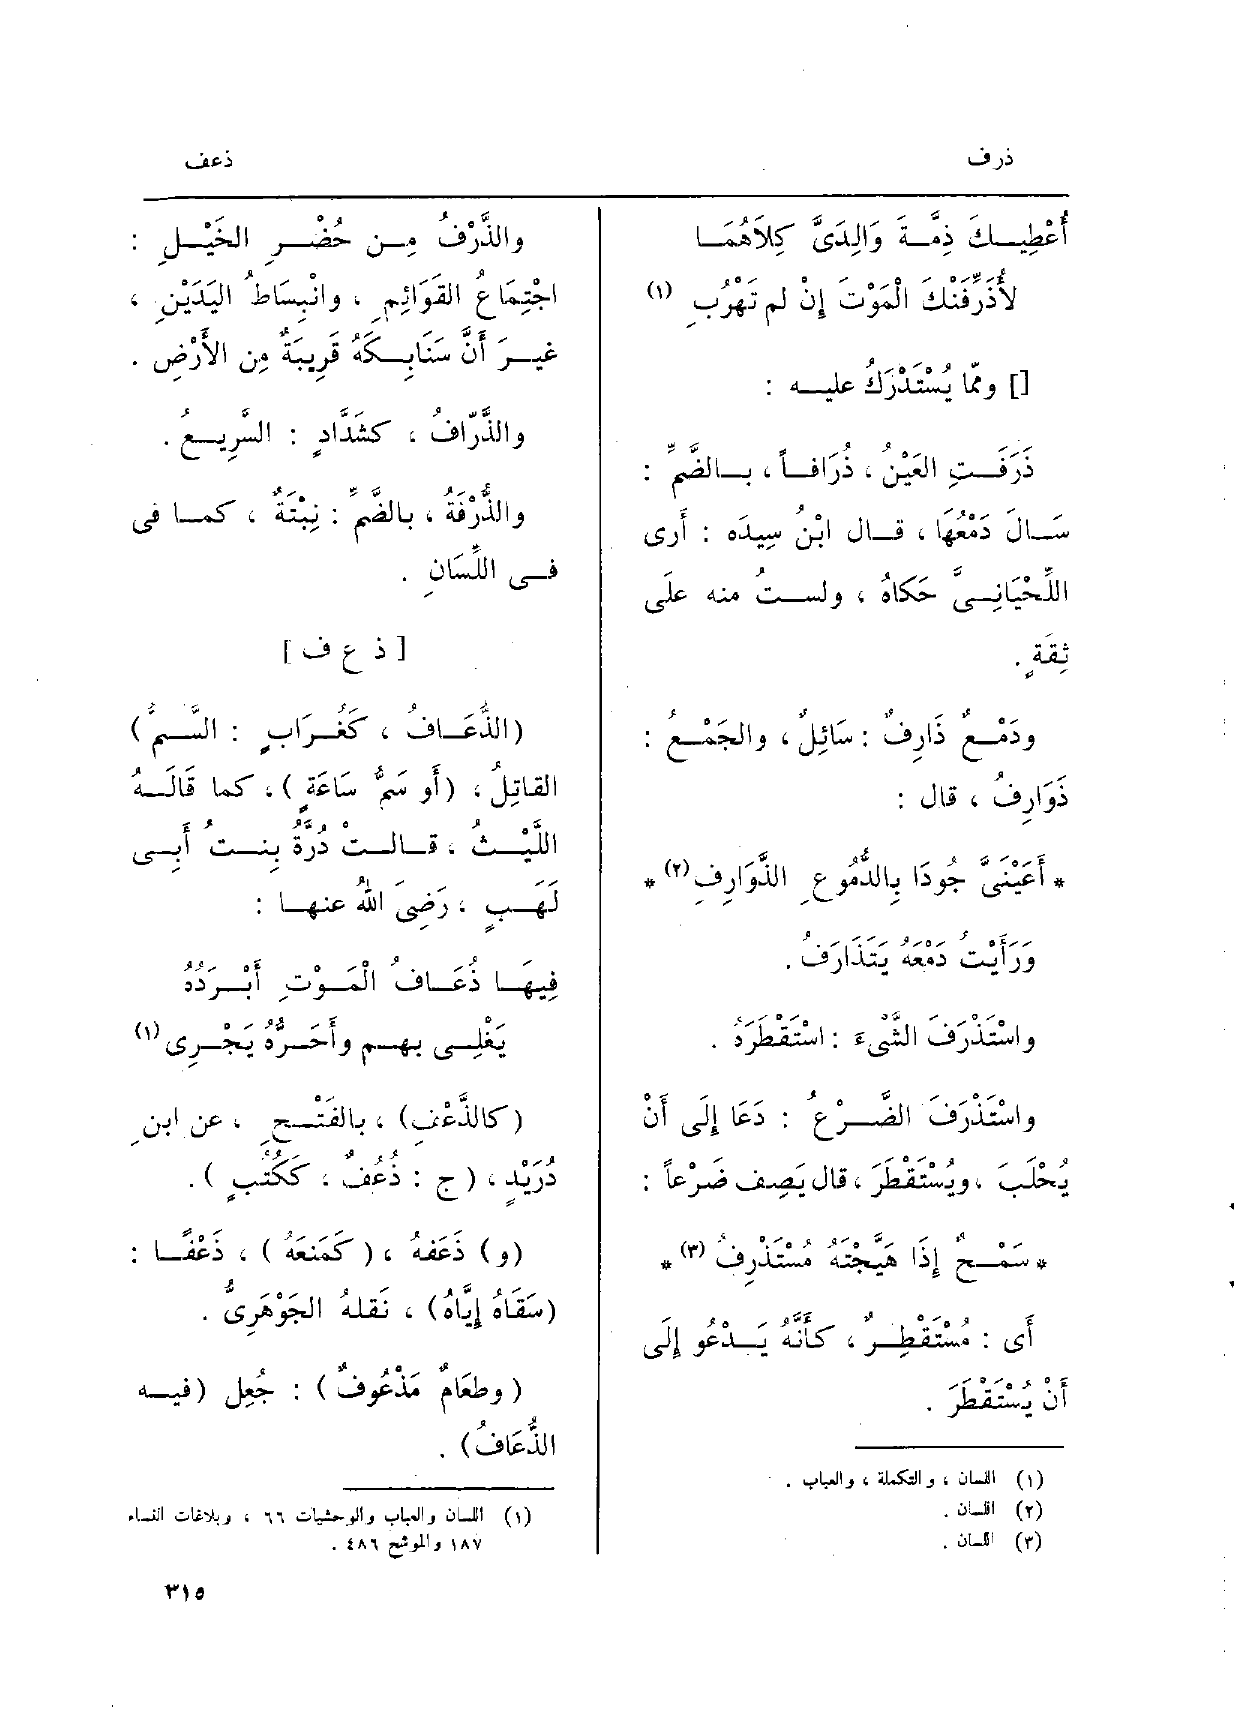 ذرف
ذعف
أُعْطِيكَ ذِمَّةَ وَالِدَىَّ كِلَاهُمَا
لأُذَرِّفَنْكَ الْمَوْتَ إِنْ لم تَهْرُبِ (١)
[] وممّا يُسْتَدْرَكُ عليه :
ذَرَفَتِ العَيْنُ ، ذُرَافاً ، بالضَّمِّ :
سَالَ دَمْعُهَا ، قال ابْنُ سِيدَه : أَرى
اللِّحْيَانِىَّ حَكَاهُ ، ولستُ منه علَى
ثِقَةٍ .
ودَمْعٌ ذَارِفٌ : سَائِلٌ ، والجَمْعُ :
ذَوَارِفُ ، قال :
* أَعَيْنَىَّ جُودَا بِالدُّمُوعِ الذَّوَارِفِ (٢) *
وَرَأَيْتُ دَمْعَهُ يَتَذَارَفُ .
واسْتَذْرَفَ الشَّىْءَ : اسْتَقْطَرَهُ .
واسْتَذْرَفَ الضَّرْعُ : دَعَا إِلَى أَنْ
يُحْلَبَ ، ويُسْتَقْطَرَ ، قال يَصِف ضَرْعاً :
* سَمْحٌ إِذَا هَيَّجْتَهُ مُسْتَذْرِفُ (٣) *
أَى : مُسْتَقْطِرٌ ، كأَنَّهُ يَدْعُو إِلَى
أَنْ يُسْتَقْطَرَ .
(١) اللسان ، والتكملة ، والعباب .
(٢) اللسان .
(٣) اللسان .
والذَّرْفُ مِن حُضْرِ الخَيْلِ :
اجْتِمَاعُ القَوَائِمِ ، وانْبِسَاطُ اليَدَيْنِ ،
غيرَ أَنَّ سَنَابِكَهُ قَرِيبَةٌ مِن الأَرْضِ .
والذَّرَّافُ ، كشَدَّادٍ : السَّرِيعُ .
والذُّرْفَةُ ، بالضَّمِّ : نِبْتَةٌ ، كما فى
فى اللِّسَانِ .
[ ذ ع ف ]
(الذُّعَافُ ، كَغُرَابٍ : السَّمُّ)
القاتِلُ ، (أَو سَمُّ سَاعَةٍ) ، كما قَالَهُ
اللَّيْثُ ، قالتْ دُرَّةُ بِنتُ أَبِى
لَهَبٍ ، رَضِىَ اللهُ عنها :
فِيهَا ذُعَافُ الْمَوْتِ أَبْرَدُهُ
يَغْلِى بهم وأَحَرُّهُ يَجْرِى (١)
(كالذَّعْفِ) ، بالفَتْحِ ، عن ابنِ
دُرَيْدٍ ، (ج : ذُعُفٌ ، ككُتُبٍ ) .
(و) ذَعَفهُ ، (كَمَنعَهُ) ، ذَعْفًا :
(سَقَاهُ إِيَّاهُ) ، نَقلهُ الجَوْهَرِىُّ .
(وطَعَامٌ مَذْعُوفٌ) : جُعِل (فيه
الذُّعَافُ) .
(١) اللسان والعباب والوحشيات ٦٦ ، وبلاغات النساء
١٨٧ والموشح ٤٨٦ .
٣١٥